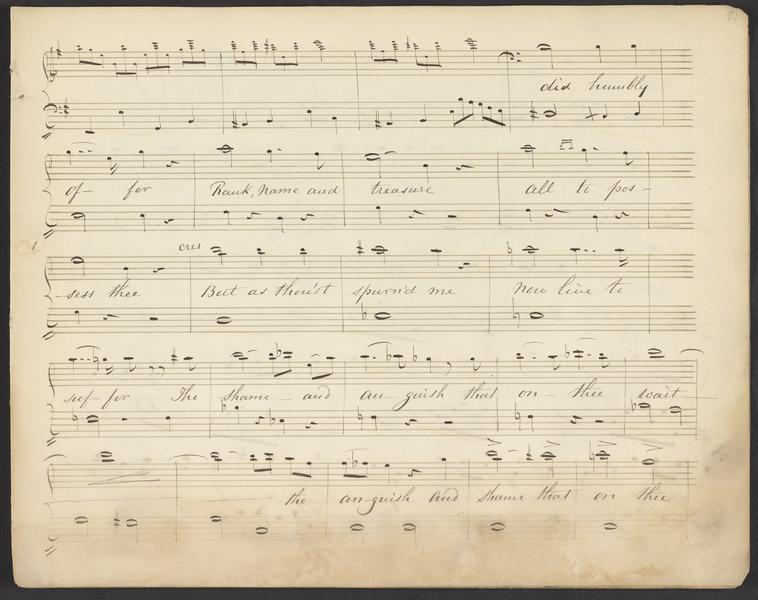 did humbly
of- fer Rank, name and treasure all to pos-
cres
-sess thee But as thou'st spurn'd me now live to
suf- fer The shame- and an- guish that on- thee wait
the an-guish and shame that on thee